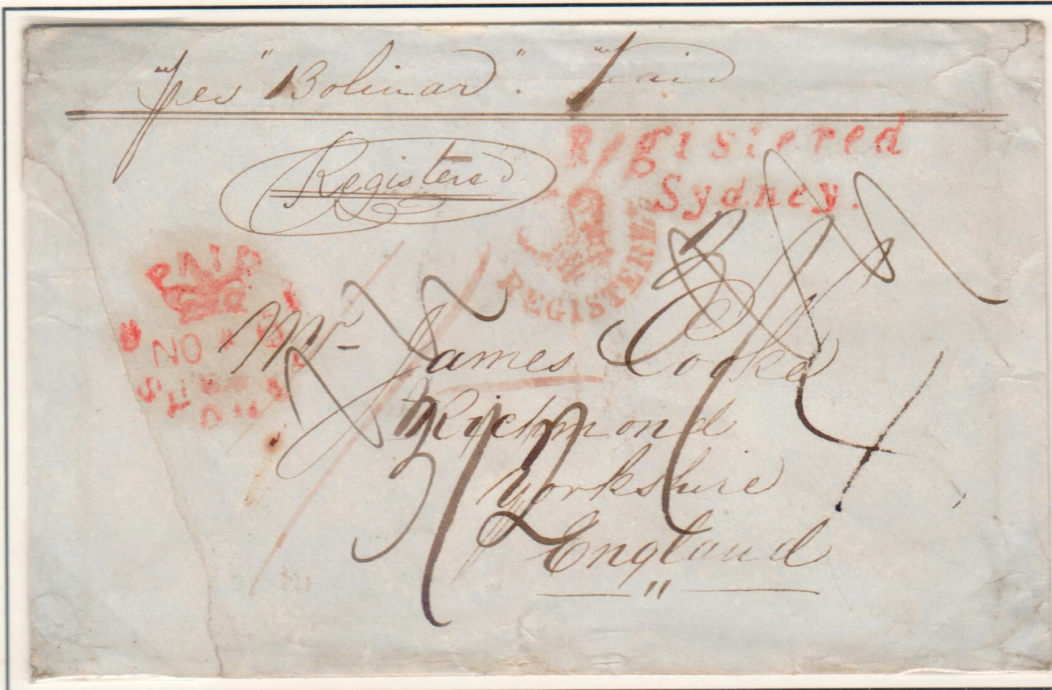 per "Bolivar". Paid
Registered
Registered
Sydney.
REGISTERED
PAID
NO
SYDNEY
Mr James Cooke
Richmond
Yorkshire
England